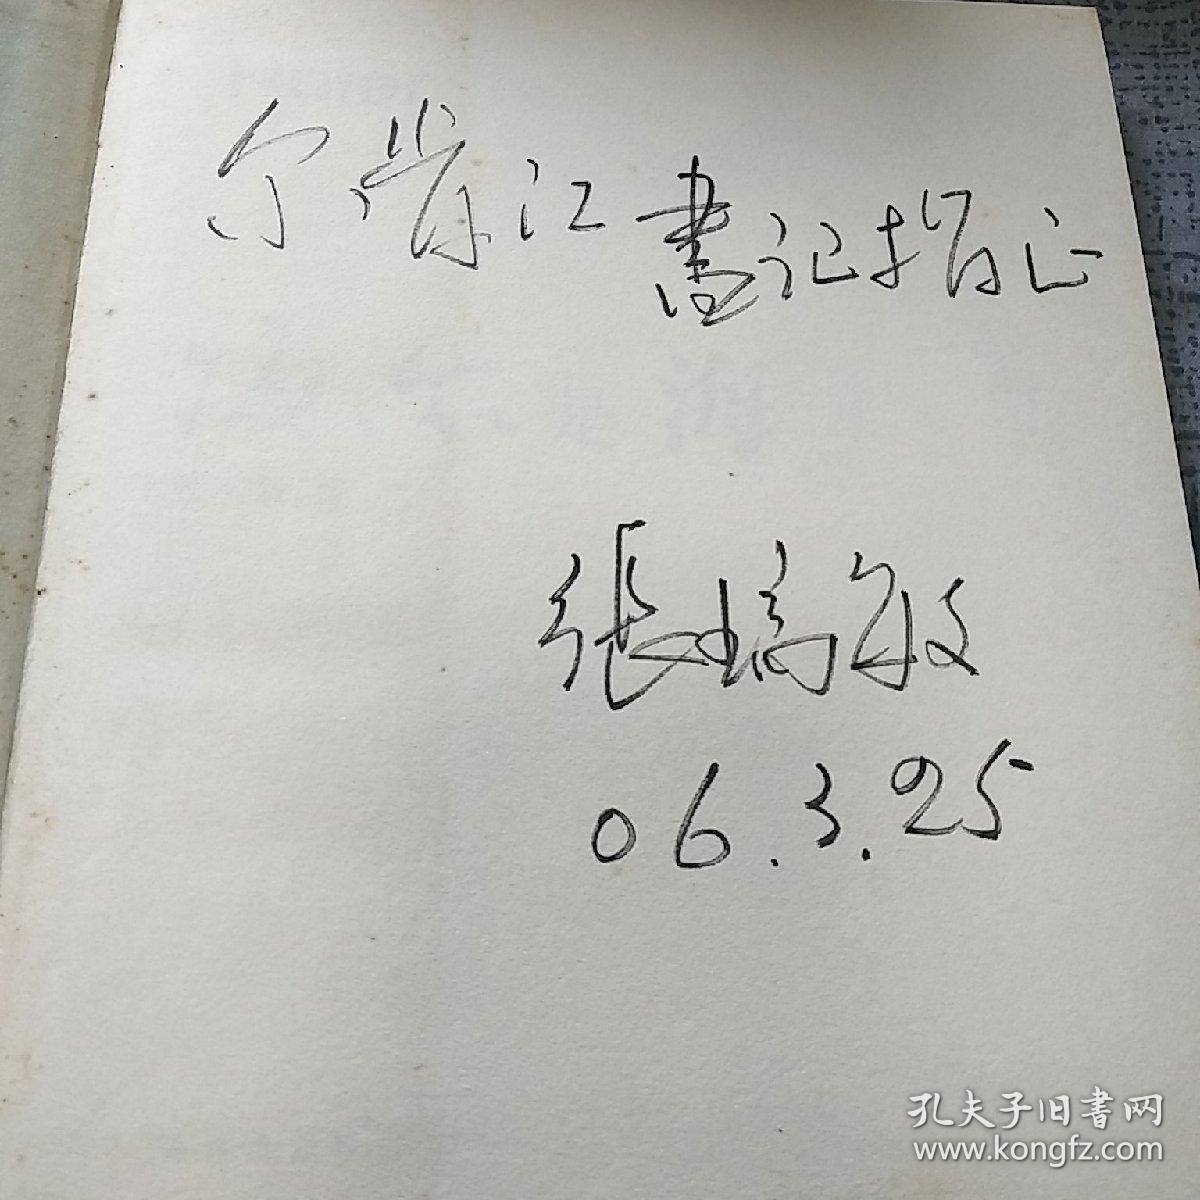 尔肯江書记指正
張敏
06.3.25
孔夫子旧書网
www.kongfz.com